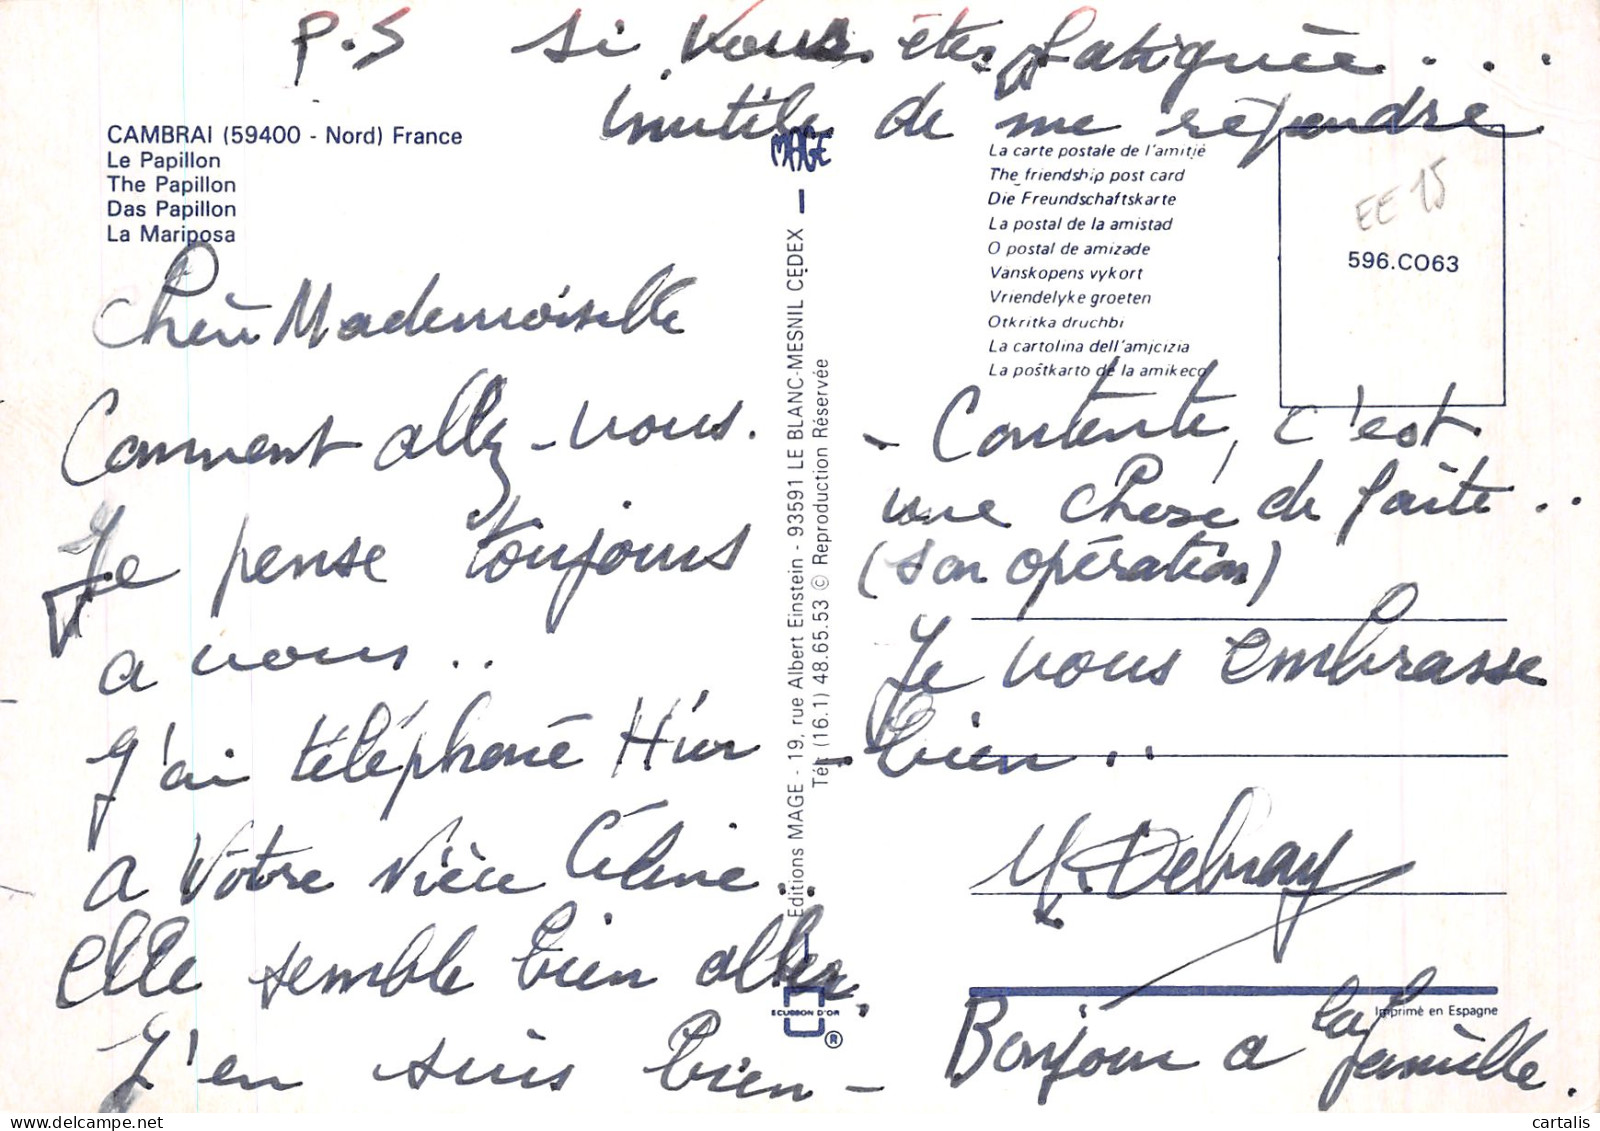 P.S si vous êtes fatiguée...
inutile de me répondre
CAMBRAI (59400 - Nord) France
Le Papillon
The Papillon
Das Papillon
La Mariposa
Chère Mademoiselle
Comment allez-vous.
Je pense toujours
a vous..
J'ai téléphoné Hier
a votre nièce Céline..
Elle semble bien aller,
J'en suis bien -
MAGE
Editions MAGE - 19, rue Albert Einstein - 93591 LE BLANC-MESNIL CEDEX
Tél. (16.1) 48.65.53 © Reproduction Réservée
ECUSSON D'OR
®
La carte postale de l'amitié
The friendship post card
Die Freundschaftskarte
La postal de la amistad
O postal de amizade
Vanskopens vykort
Vriendelyke groeten
Otkritka druchbi
La cartolina dell'amicizia
La poŝtkarto de la amikeco
EE 15
596.CO63
- Contente, c'est
une chose de faite..
(son opération)
Je vous embrasse
- bien..
Debray
Imprimé en Espagne
Bonjour a la
famille.
cartalis